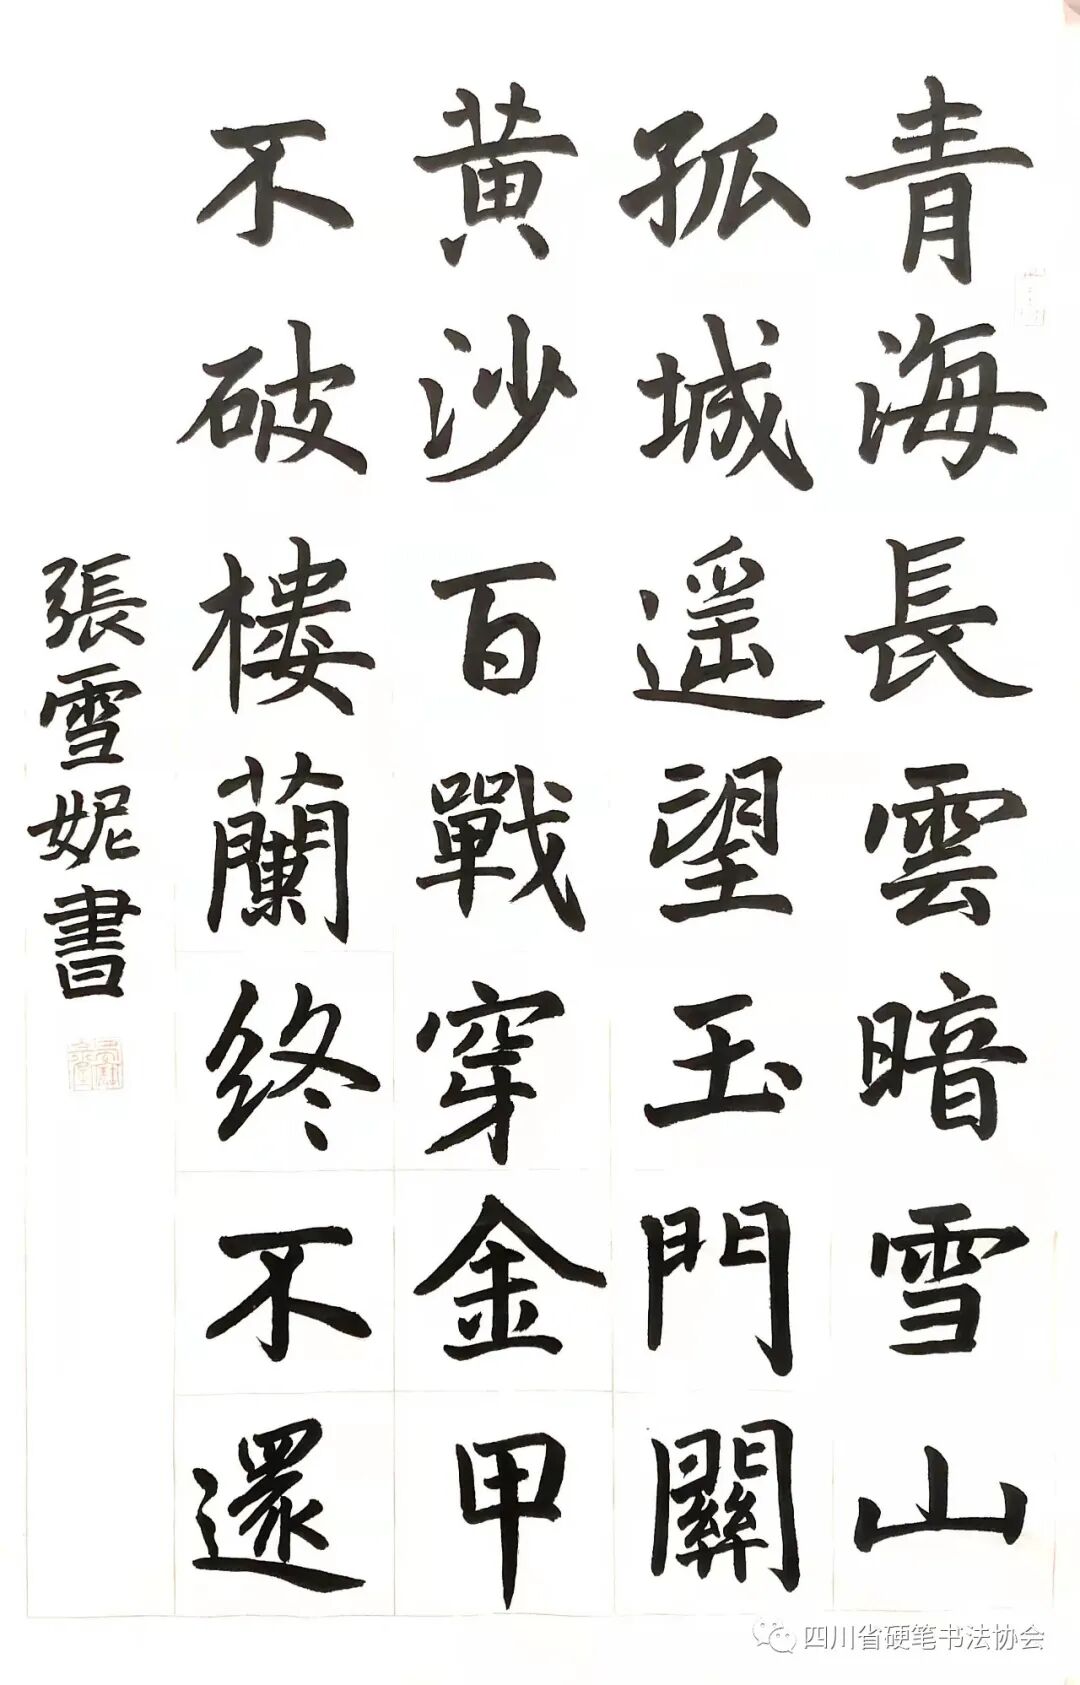 青海長雲暗雪山
孤城遥望玉門關
黄沙百戰穿金甲
不破樓蘭終不還
張雪妮書
四川省硬笔书法协会